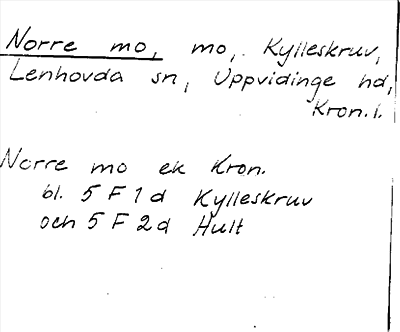 Norre mo, mo, Kylleskruv,
Lenhovda sn, Uppvidinge hd,
Kron. l.
Norre mo ek Kron.
bl. 5 F 1 d Kylleskruv
och 5 F 2 d Hult